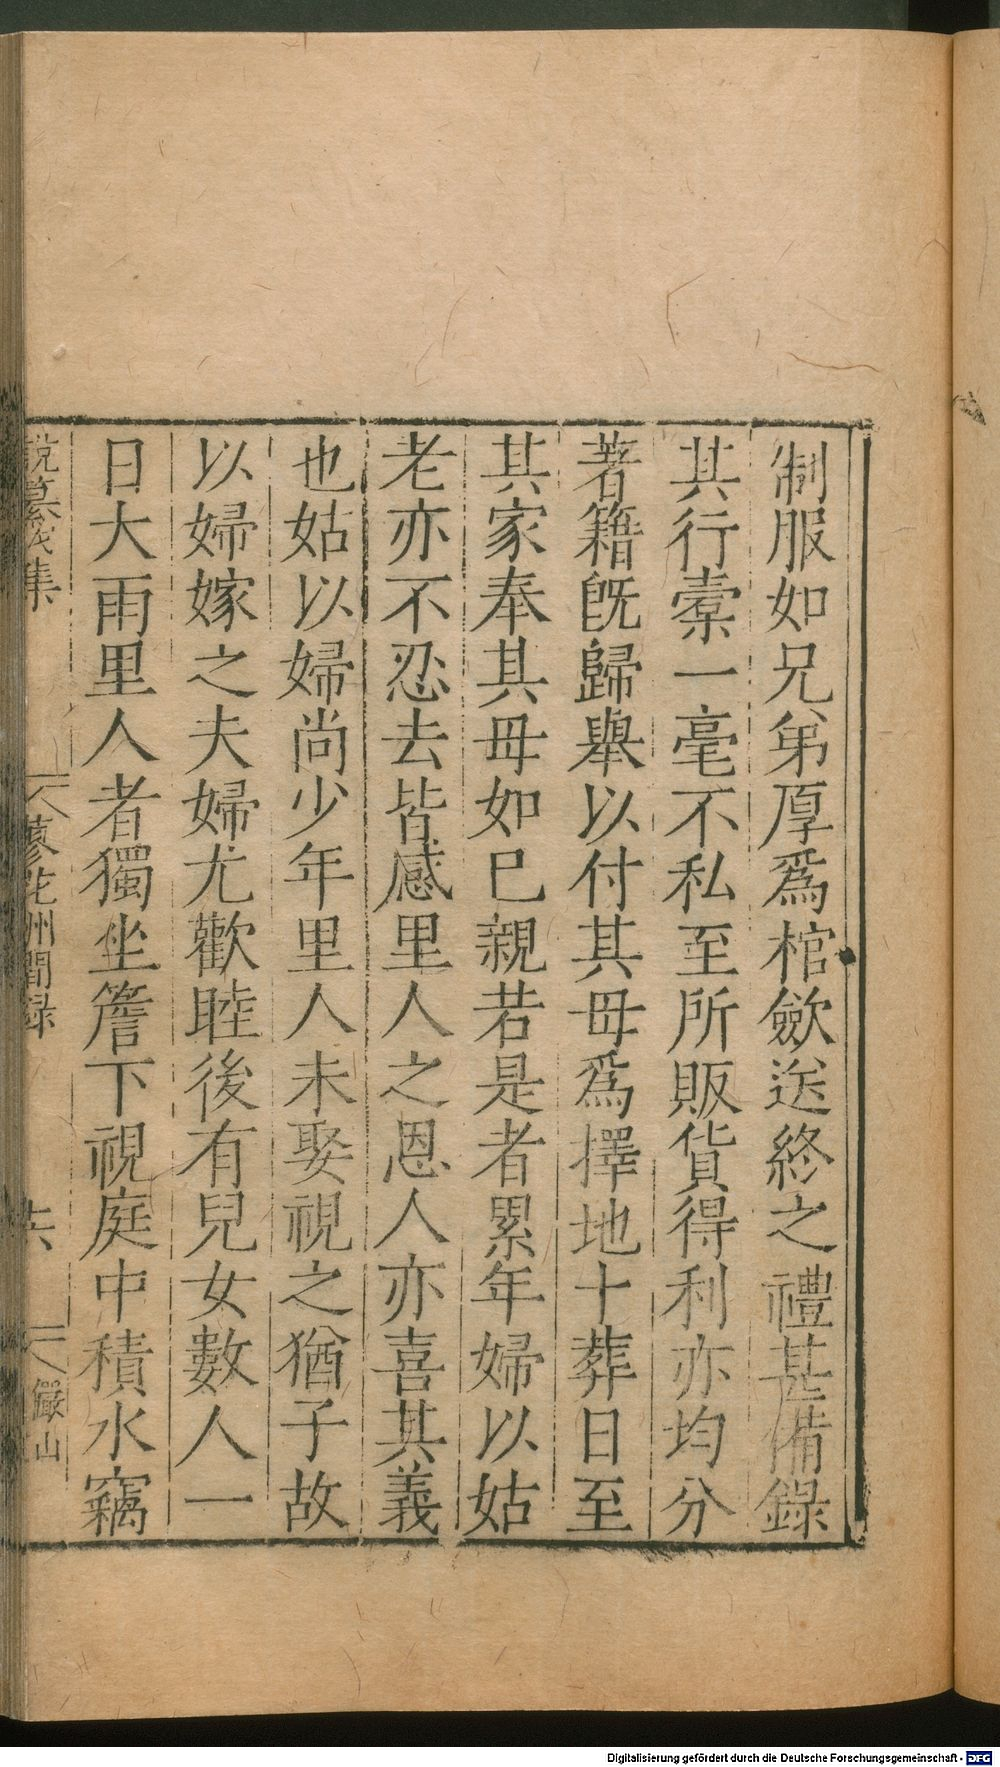 制服如兄弟厚為棺歛送終之禮甚備錄
其行橐一毫不私至所販貨得利亦均分
著籍旣歸舉以付其母為擇地卜葬日至
其家奉其母如已親若是者累年婦以姑
老亦不忍去皆感里人之恩人亦喜其義
也姑以婦尚少年里人未娶視之猶子故
以婦嫁之夫婦尤歡睦後有兒女數人一
日大雨里人者獨坐簷下視庭中積水竊
說纂戊集 蓼花洲閒錄 六 儼山
Digitalisierung gefördert durch die Deutsche Forschungsgemeinschaft - DFG